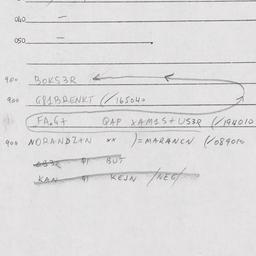 040
050
900 BOKS3R
900 GP1BRENKT (/165040
FA.G+ QAP XAM1S+US3R (/194010
900 NORANDZ+N ** )=MARANCN (/089010
KAN 91 KEJN /NEG/